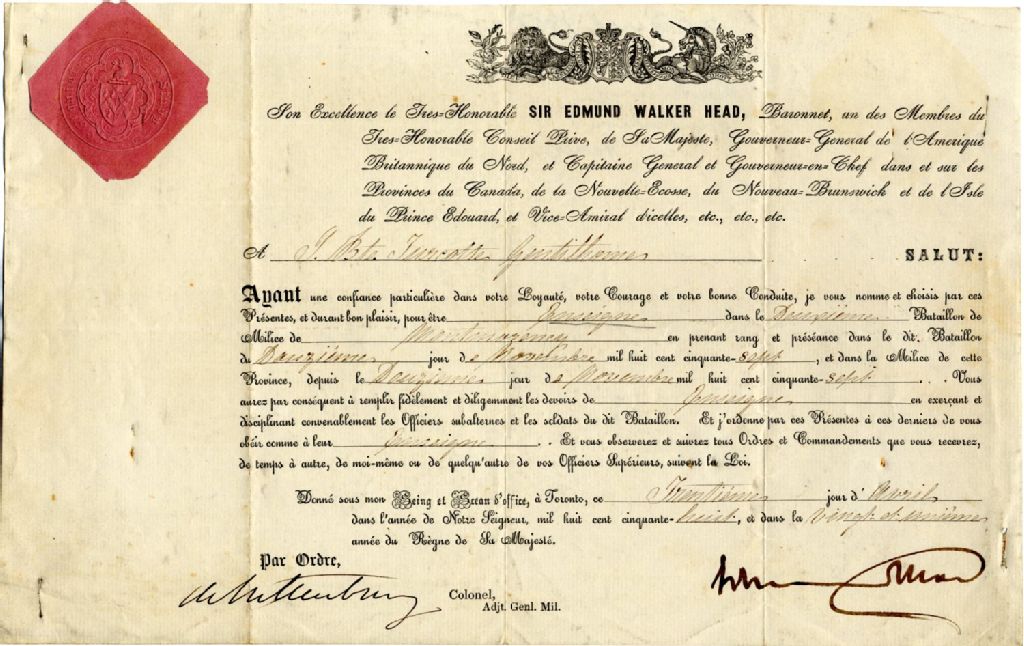 Son Excellence le Tres-Honorable SIR EDMUND WALKER HEAD, Baronnet, un des Membres du
Tres-Honorable Conseil Prive, de Sa Majeste, Gouverneur-General de l'Amerique
Britannique du Nord, et Capitaine General et Gouverneur-en-Chef dans et sur les
Provinces du Canada, de la Nouvelle-Ecosse, du Nouveau-Brunswick et de l'Isle
du Prince Edouard, et Vice-Amiral d'icelles, etc., etc., etc.
A J. Bte Turcotte Gentilhomme SALUT:
Ayant une confiance particulière dans votre Loyauté, votre Courage et votre bonne Conduite, je vous nomme et choisis par ces
Présentes, et durant bon plaisir, pour être Enseigne dans le Deuxième Bataillon de
Milice de Montmorency en prenant rang et préséance dans le dit Bataillon
du Douzième jour de Novembre mil huit cent cinquante-sept, et dans la Milice de cette
Province, depuis le Douzième jour de Novembre mil huit cent cinquante-sept . . . Vous
aurez par conséquent à remplir fidèlement et diligemment les devoirs de Enseigne en exerçant et
disciplinant convenablement les Officiers subalternes et les soldats du dit Bataillon. Et j'ordonne par ces Présentes à ces derniers de vous
obéir comme à leur Enseigne . . Et vous observerez et suivrez tous Ordres et Commandements que vous recevrez,
de temps à autre, de moi-même ou de quelqu'autre de vos Officiers Supérieurs, suivent la Loi.
Donné sous mon Seing et Sceau d'office, à Toronto, ce Trentième jour d'Avril
dans l'année de Notre Seigneur, mil huit cent cinquante-huit, et dans la vingt et unième
année du Règne de Sa Majesté.
Par Ordre,
Colonel,
Adjt. Genl. Mil.